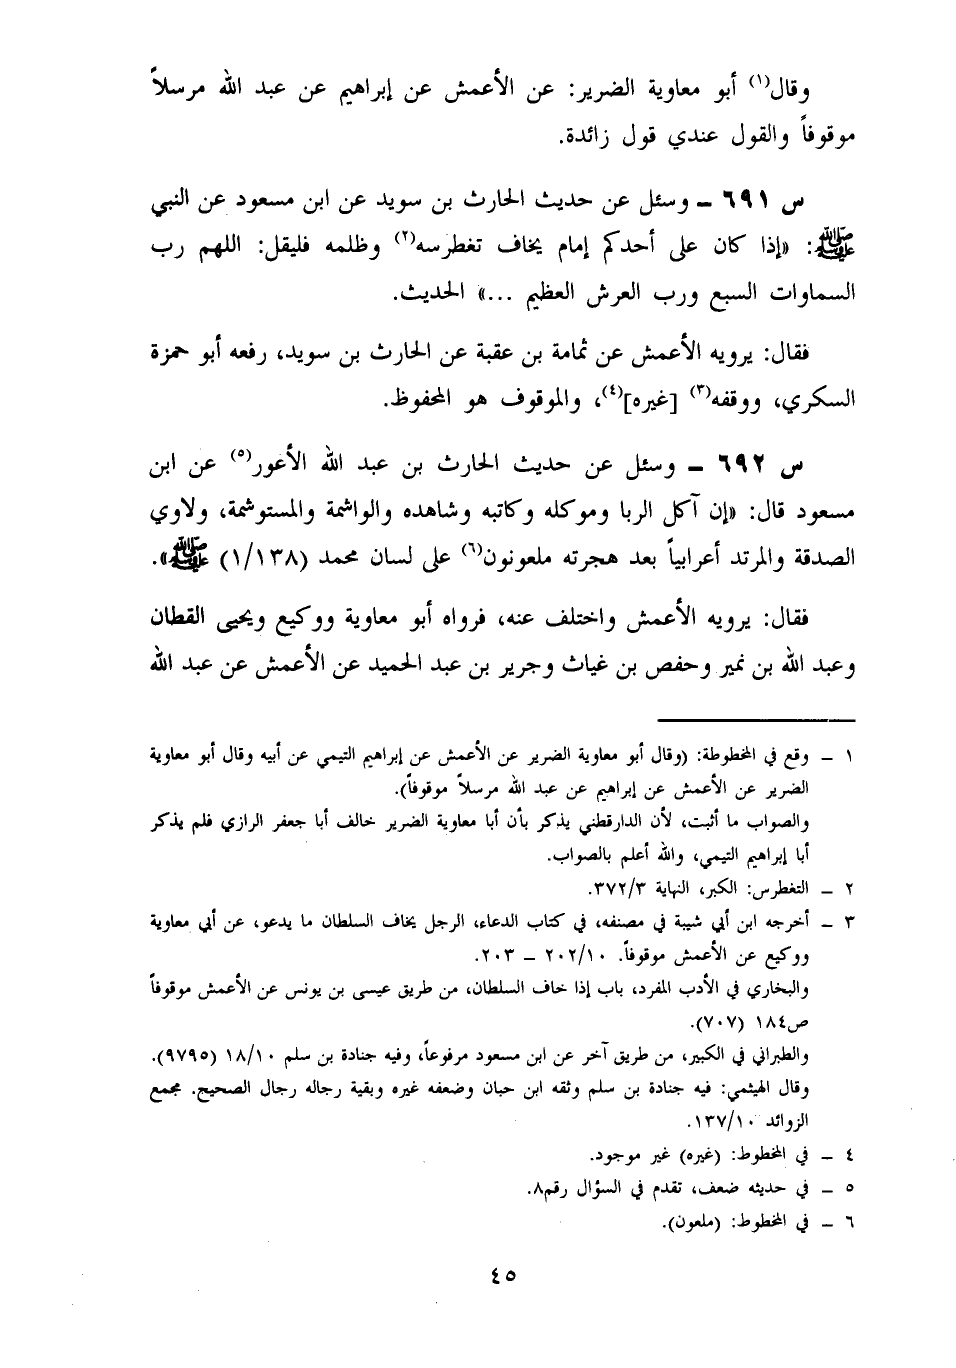 وقال(١) أبو معاوية الضرير: عن الأعمش عن إبراهيم عن عبد الله مرسلاً
موقوفاً والقول عندي قول زائدة.
س ٦٩١ ــ وسئل عن حديث الحارث بن سويد عن ابن مسعود عن النبي
ﷺ: «إذا كان على أحدكم إمام يخاف تغطرسه(٢) وظلمه فليقل: اللهم رب
السماوات السبع ورب العرش العظيم ...» الحديث.
فقال: يرويه الأعمش عن ثمامة بن عقبة عن الحارث بن سويد، رفعه أبو حمزة
السكري، ووقفه(٣) [غيره](٤)، والموقوف هو المحفوظ.
س ٦٩٢ ــ وسئل عن حديث الحارث بن عبد الله الأعور(٥) عن ابن
مسعود قال: «إن آكل الربا وموكله وكاتبه وشاهده والواشمة والمستوشمة، ولاوي
الصدقة والمرتد أعرابياً بعد هجرته ملعونون(٦) على لسان محمد (١/١٣٨) ﷺ».
فقال: يرويه الأعمش واختلف عنه، فرواه أبو معاوية ووكيع ويحيى القطان
وعبد الله بن نمير وحفص بن غياث وجرير بن عبد الحميد عن الأعمش عن عبد الله
١ ــ وقع في المخطوطة: (وقال أبو معاوية الضرير عن الأعمش عن إبراهيم التيمي عن أبيه وقال أبو معاوية
الضرير عن الأعمش عن إبراهيم عن عبد الله مرسلاً موقوفاً).
والصواب ما أثبت، لأن الدارقطني يذكر بأن أبا معاوية الضرير خالف أبا جعفر الرازي فلم يذكر
أبا إبراهيم التيمي، والله أعلم بالصواب.
٢ ــ التغطرس: الكبر، النهاية ٣٧٢/٣.
٣ ــ أخرجه ابن أبي شيبة في مصنفه، في كتاب الدعاء، الرجل يخاف السلطان ما يدعو، عن أبي معاوية
ووكيع عن الأعمش موقوفاً. ٢٠٢/١٠ ــ ٢٠٣.
والبخاري في الأدب المفرد، باب إذا خاف السلطان، من طريق عيسى بن يونس عن الأعمش موقوفاً
ص١٨٤ (٧٠٧).
والطبراني في الكبير، من طريق آخر عن ابن مسعود مرفوعاً، وفيه جنادة بن سلم ١٨/١٠ (٩٧٩٥).
وقال الهيثمي: فيه جنادة بن سلم وثقه ابن حبان وضعفه غيره وبقية رجاله رجال الصحيح. مجمع
الزوائد ١٣٧/١٠.
٤ ــ في المخطوط: (غيره) غير موجود.
٥ ــ في حديثه ضعف، تقدم في السؤال رقم٨.
٦ ــ في المخطوط: (ملعون).
٤٥